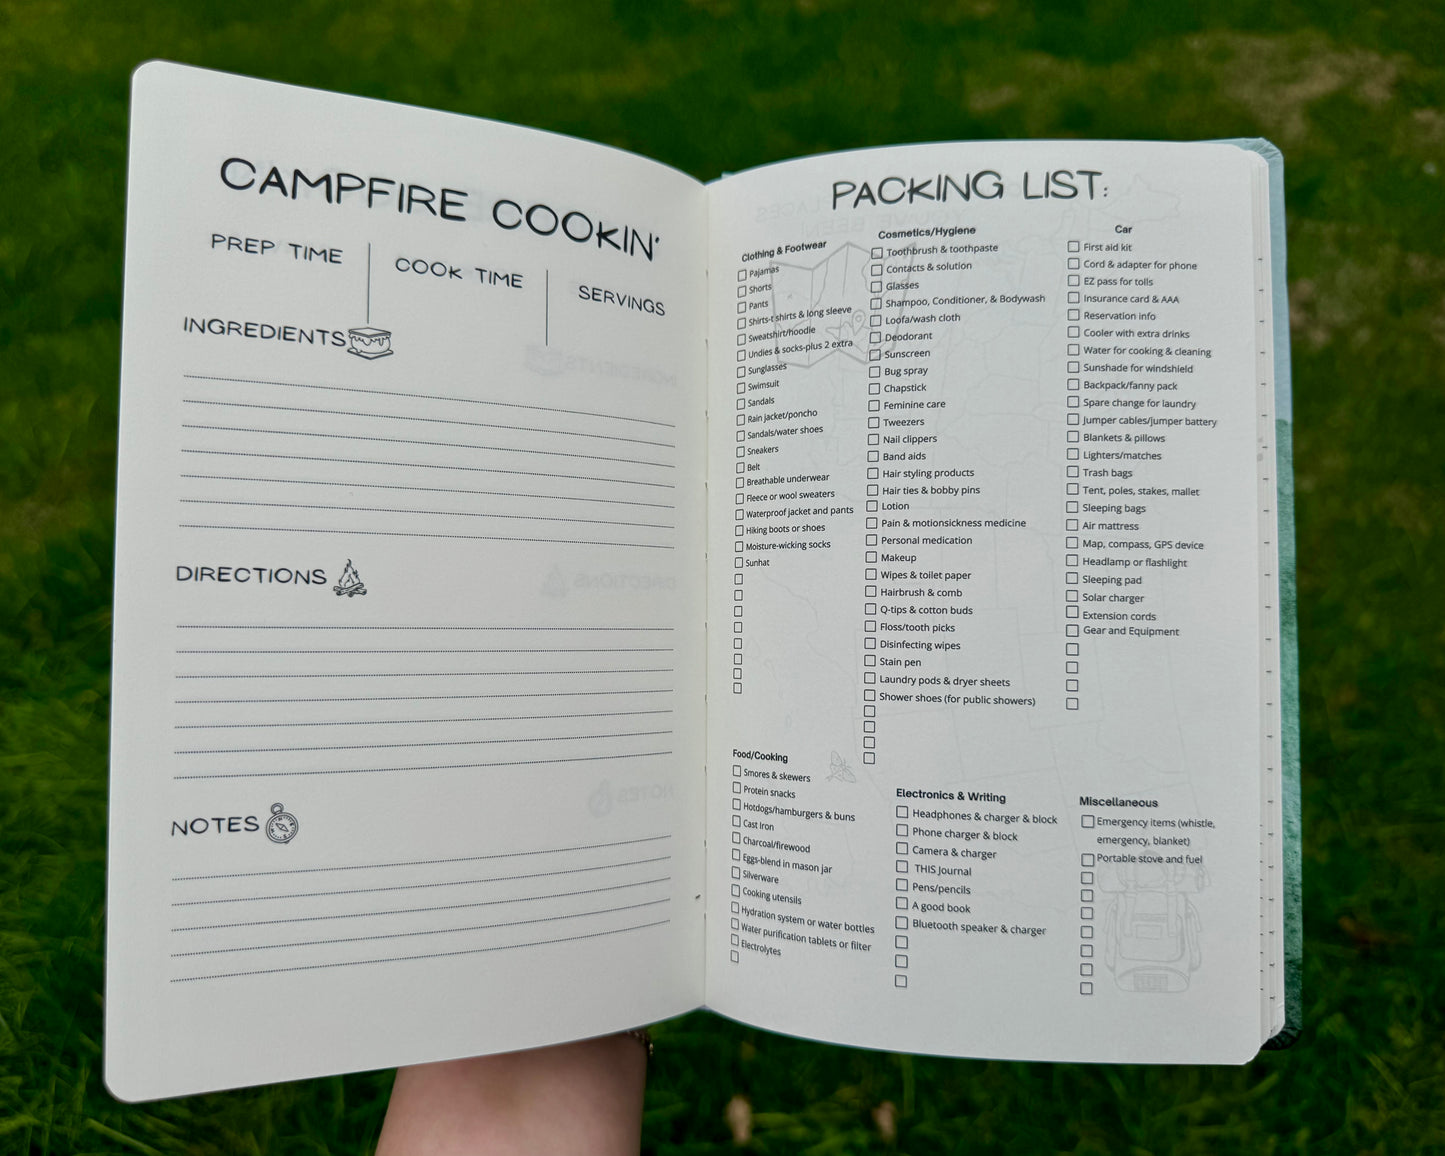 CAMPFIRE COOKIN'
PREP TIME
COOK TIME
SERVINGS
INGREDIENTS
DIRECTIONS
NOTES
PACKING LIST:
Clothing & Footwear
Pajamas
Shorts
Pants
Shirts-t shirts & long sleeve
Sweatshirt/hoodie
Undies & socks-plus 2 extra
Sunglasses
Swimsuit
Sandals
Rain jacket/poncho
Sandals/water shoes
Sneakers
Belt
Breathable underwear
Fleece or wool sweaters
Waterproof jacket and pants
Hiking boots or shoes
Moisture-wicking socks
Sunhat
Cosmetics/Hygiene
Toothbrush & toothpaste
Contacts & solution
Glasses
Shampoo, Conditioner, & Bodywash
Loofa/wash cloth
Deodorant
Sunscreen
Bug spray
Chapstick
Feminine care
Tweezers
Nail clippers
Band aids
Hair styling products
Hair ties & bobby pins
Lotion
Pain & motionsickness medicine
Personal medication
Makeup
Wipes & toilet paper
Hairbrush & comb
Q-tips & cotton buds
Floss/tooth picks
Disinfecting wipes
Stain pen
Laundry pods & dryer sheets
Shower shoes (for public showers)
Car
First aid kit
Cord & adapter for phone
EZ pass for tolls
Insurance card & AAA
Reservation info
Cooler with extra drinks
Water for cooking & cleaning
Sunshade for windshield
Backpack/fanny pack
Spare change for laundry
Jumper cables/jumper battery
Blankets & pillows
Lighters/matches
Trash bags
Tent, poles, stakes, mallet
Sleeping bags
Air mattress
Map, compass, GPS device
Headlamp or flashlight
Sleeping pad
Solar charger
Extension cords
Gear and Equipment
Food/Cooking
Smores & skewers
Protein snacks
Hotdogs/hamburgers & buns
Cast Iron
Charcoal/firewood
Eggs-blend in mason jar
Silverware
Cooking utensils
Hydration system or water bottles
Water purification tablets or filter
Electrolytes
Electronics & Writing
Headphones & charger & block
Phone charger & block
Camera & charger
THIS Journal
Pens/pencils
A good book
Bluetooth speaker & charger
Miscellaneous
Emergency items (whistle,
emergency, blanket)
Portable stove and fuel